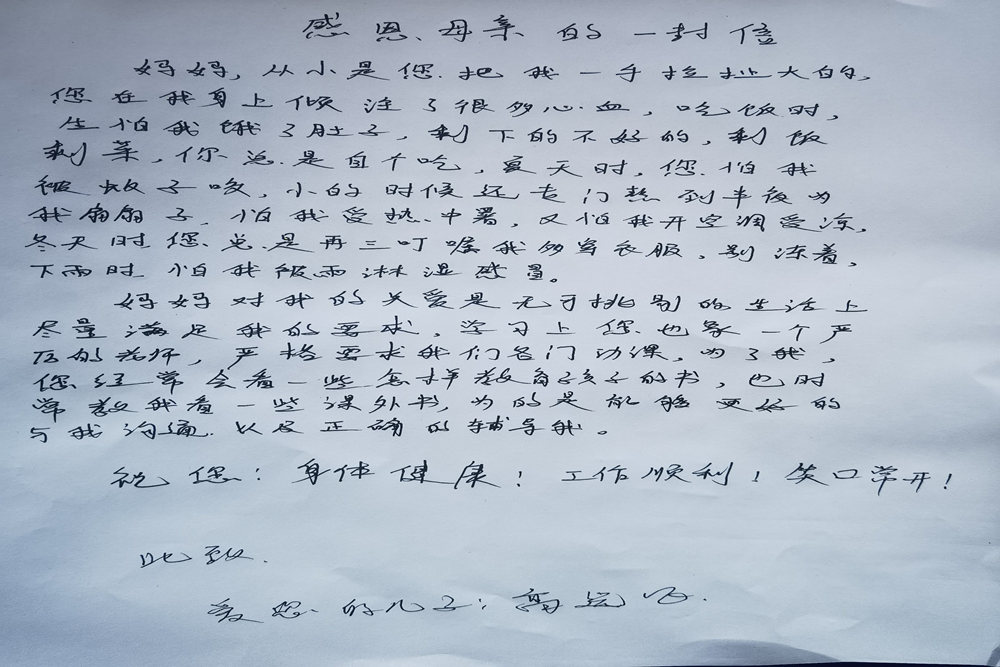 感恩母亲的一封信
妈妈，从小是您把我一手拉扯大的，
您在我身上倾注了很多心血，吃饭时，
生怕我饿了肚子，剩下的不好的，剩饭
剩菜，你总是自个吃，夏天时，您怕我
被蚊子咬，小的时候还专门熬到半夜为
我扇扇子，怕我受热中暑，又怕我开空调受凉，
冬天时您总是再三叮嘱我多穿衣服，别冻着，
下雨时怕我被雨淋湿感冒。
妈妈对我的关爱是无可挑剔的生活上
尽量满足我的要求，学习上您也象一个严
厉的老师，严格要求我们各门功课，为了我，
您经常会看一些怎样教育孩子的书，也时
常教我看一些课外书，为的是能够更好的
与我沟通以及正确的辅导我。
祝您：身体健康！工作顺利！笑口常开！
此致
爱您的儿子：高远